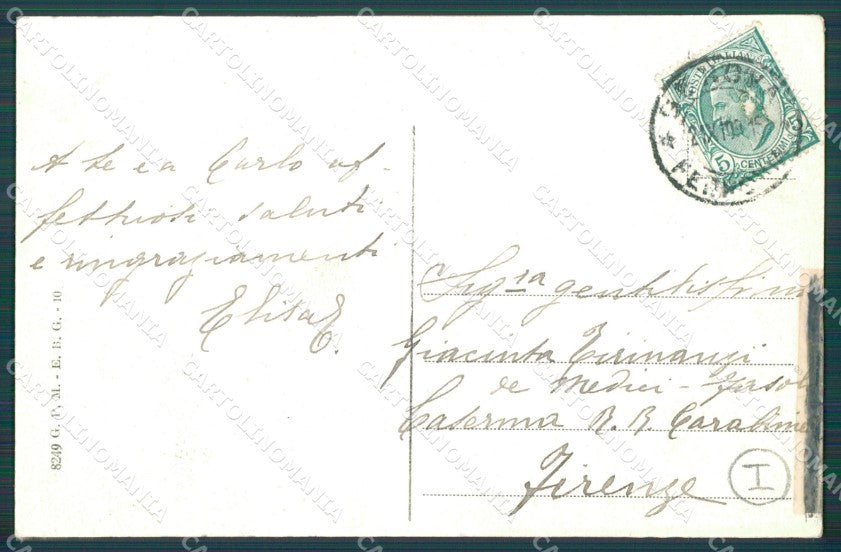 A te e a Carlo af-
fettuosi saluti
e ringraziamenti
Elisa E.
8249 G. P. M. - E. B. G. - 10
ROMA
5 CENTESIMI 5
Sig.ra gentilissima
Giacinta Tirinanzi
de Medici - Fasol
Caserma R. R. Carabinie
Firenze
I
CARTOLINOMANIA